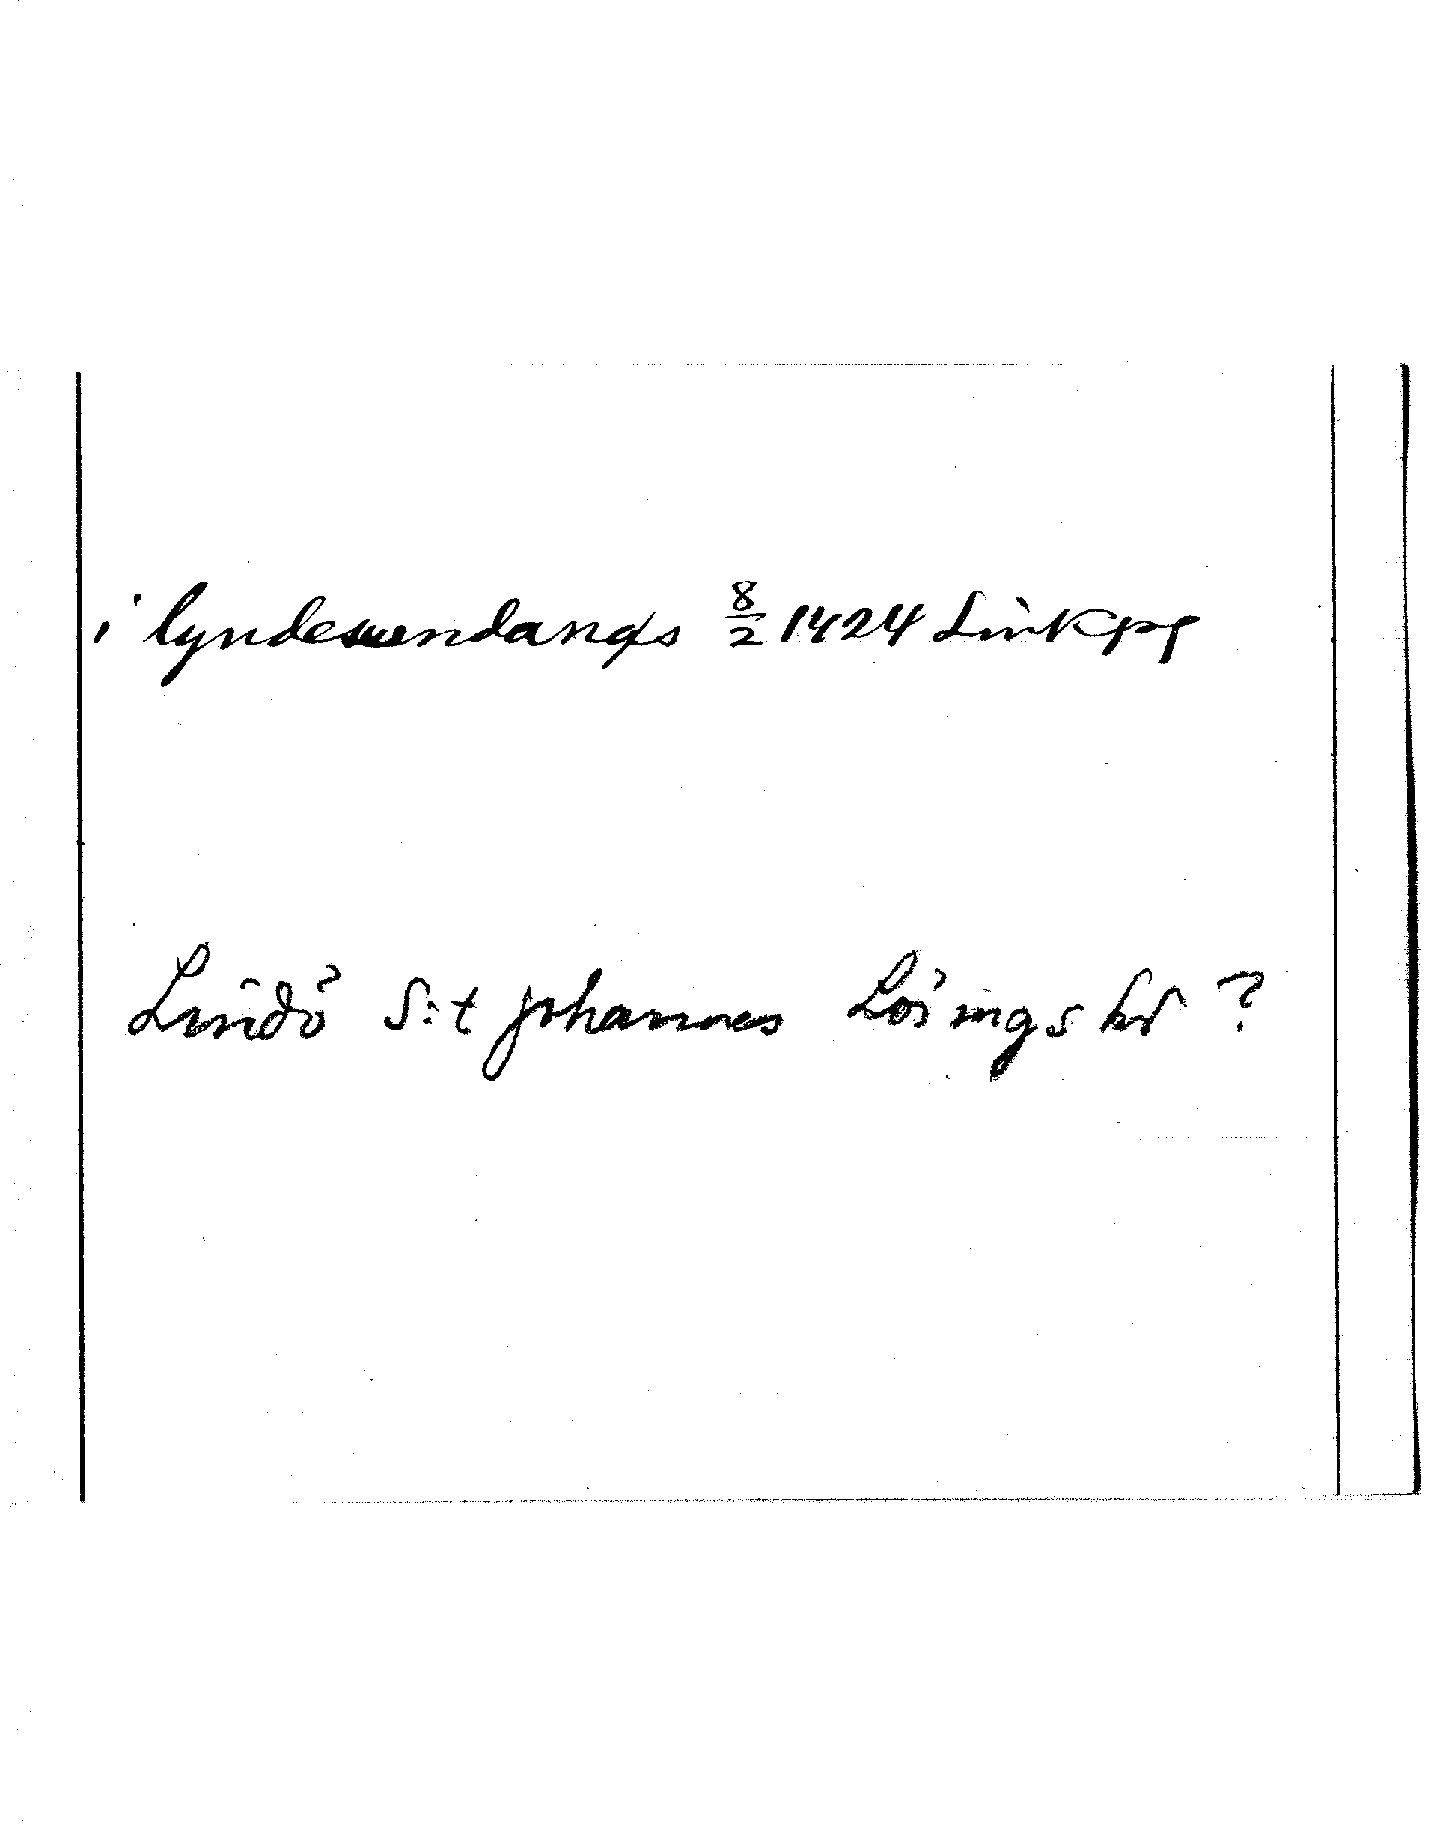 i lyndesuendangs 8/2 1424 Linkpg
Lindö S:t Johannes Lösings hd ?